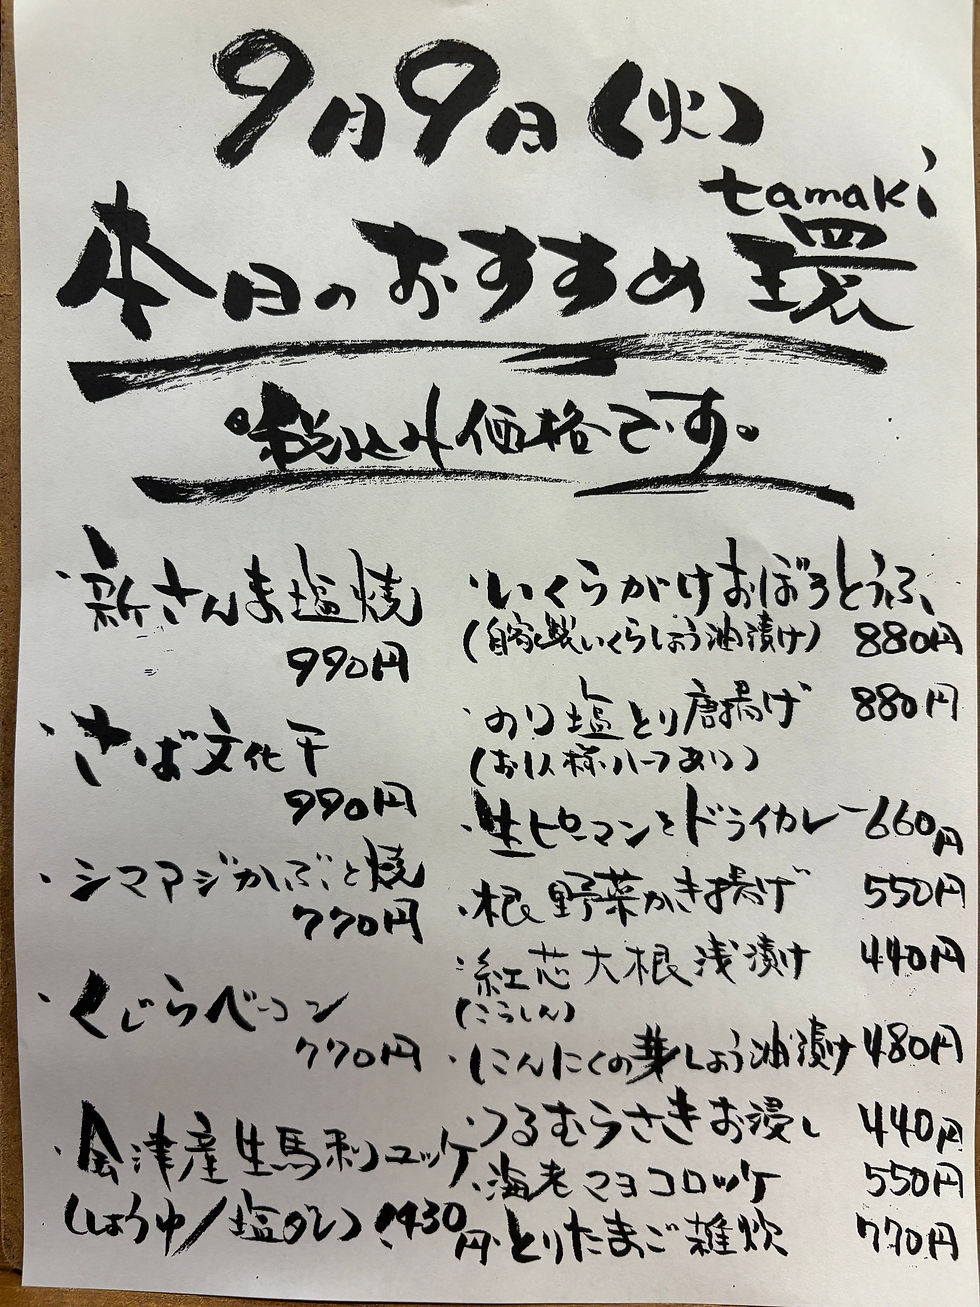 9月9日(火)
tamaki
本日のおすすめ 環
・税込み価格です。
・新さんま塩焼
990円
・さば文化干
990円
・シマアジかぶと焼
770円
・くじらベーコン
770円
・会津産生馬刺ユッケ
(しょうゆ/塩ダレ) 1430円
・いくらがけおぼろとうふ
(自家製いくらしょう油漬け) 880円
・のり塩とり唐揚げ 880円
(お1人様ハーフあり)
・生ピーマンとドライカレー 660円
・根野菜かき揚げ 550円
・紅芯大根浅漬け 440円
(こうしん)
・にんにくの芽しょう油漬け 480円
・つるむらさきお浸し 440円
・海老マヨコロッケ 550円
・とりたまご雑炊 770円